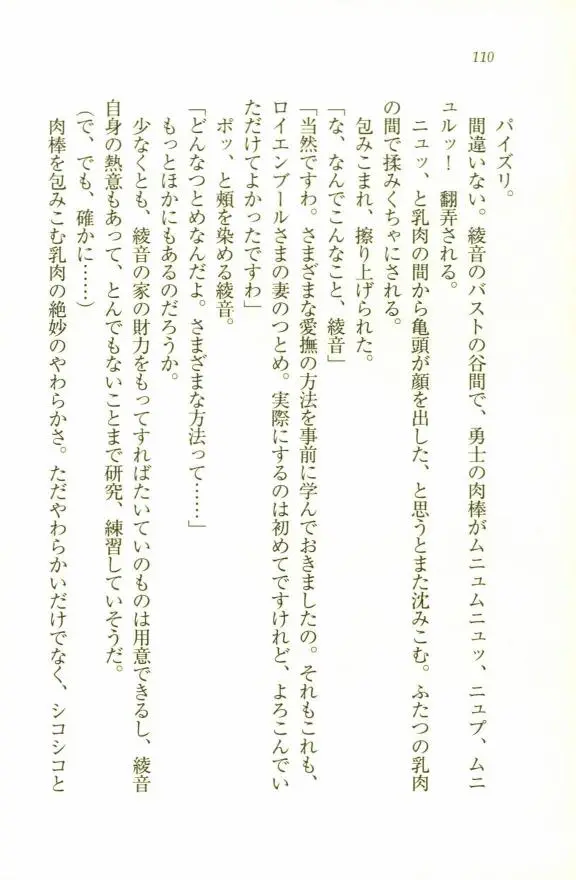 110
パイズリ。
間違いない。綾音のバストの谷間で、勇士の肉棒がムニュムニュッ、ニュプ、ムニ
ュルッ！　翻弄される。
ニュッ、と乳肉の間から亀頭が顔を出した、と思うとまた沈みこむ。ふたつの乳肉
の間で揉みくちゃにされる。
包みこまれ、擦り上げられた。
「な、なんでこんなこと、綾音」
「当然ですわ。さまざまな愛撫の方法を事前に学んでおきましたの。それもこれも、
ロイエンブールさまの妻のつとめ。実際にするのは初めてですけれど、よろこんでい
ただけてよかったですわ」
ポッ、と頬を染める綾音。
「どんなつとめなんだよ。さまざまな方法って……」
もっとほかにもあるのだろうか。
少なくとも、綾音の家の財力をもってすればたいていのものは用意できるし、綾音
自身の熱意もあって、とんでもないことまで研究、練習していそうだ。
(で、でも、確かに……)
肉棒を包みこむ乳肉の絶妙のやわらかさ。ただやわらかいだけでなく、シコシコと